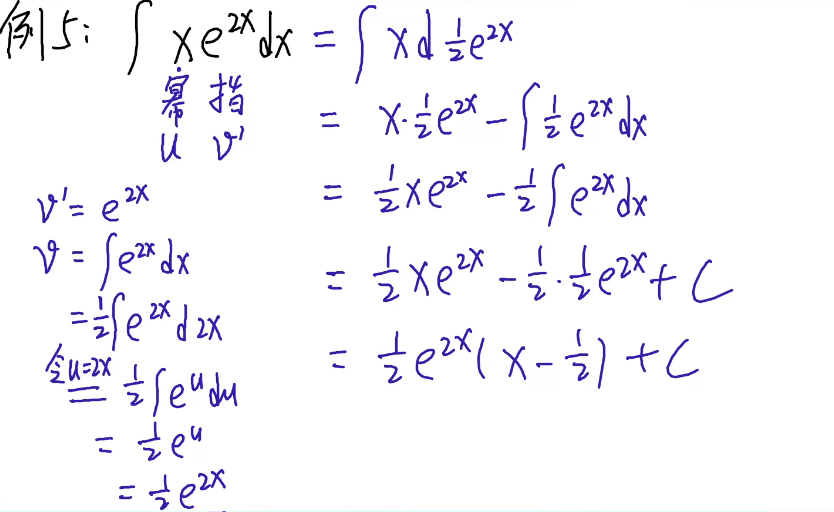 例5: ∫ x e^{2x} dx = ∫ x d ½ e^{2x}
幂 指
u v'
= x·½ e^{2x} − ∫ ½ e^{2x} dx
= ½ x e^{2x} − ½ ∫ e^{2x} dx
= ½ x e^{2x} − ½·½ e^{2x} + C
= ½ e^{2x} ( x − ½ ) + C
v' = e^{2x}
v = ∫ e^{2x} dx
= ½ ∫ e^{2x} d 2x
令u=2x = ½ ∫ e^u du
= ½ e^u
= ½ e^{2x}